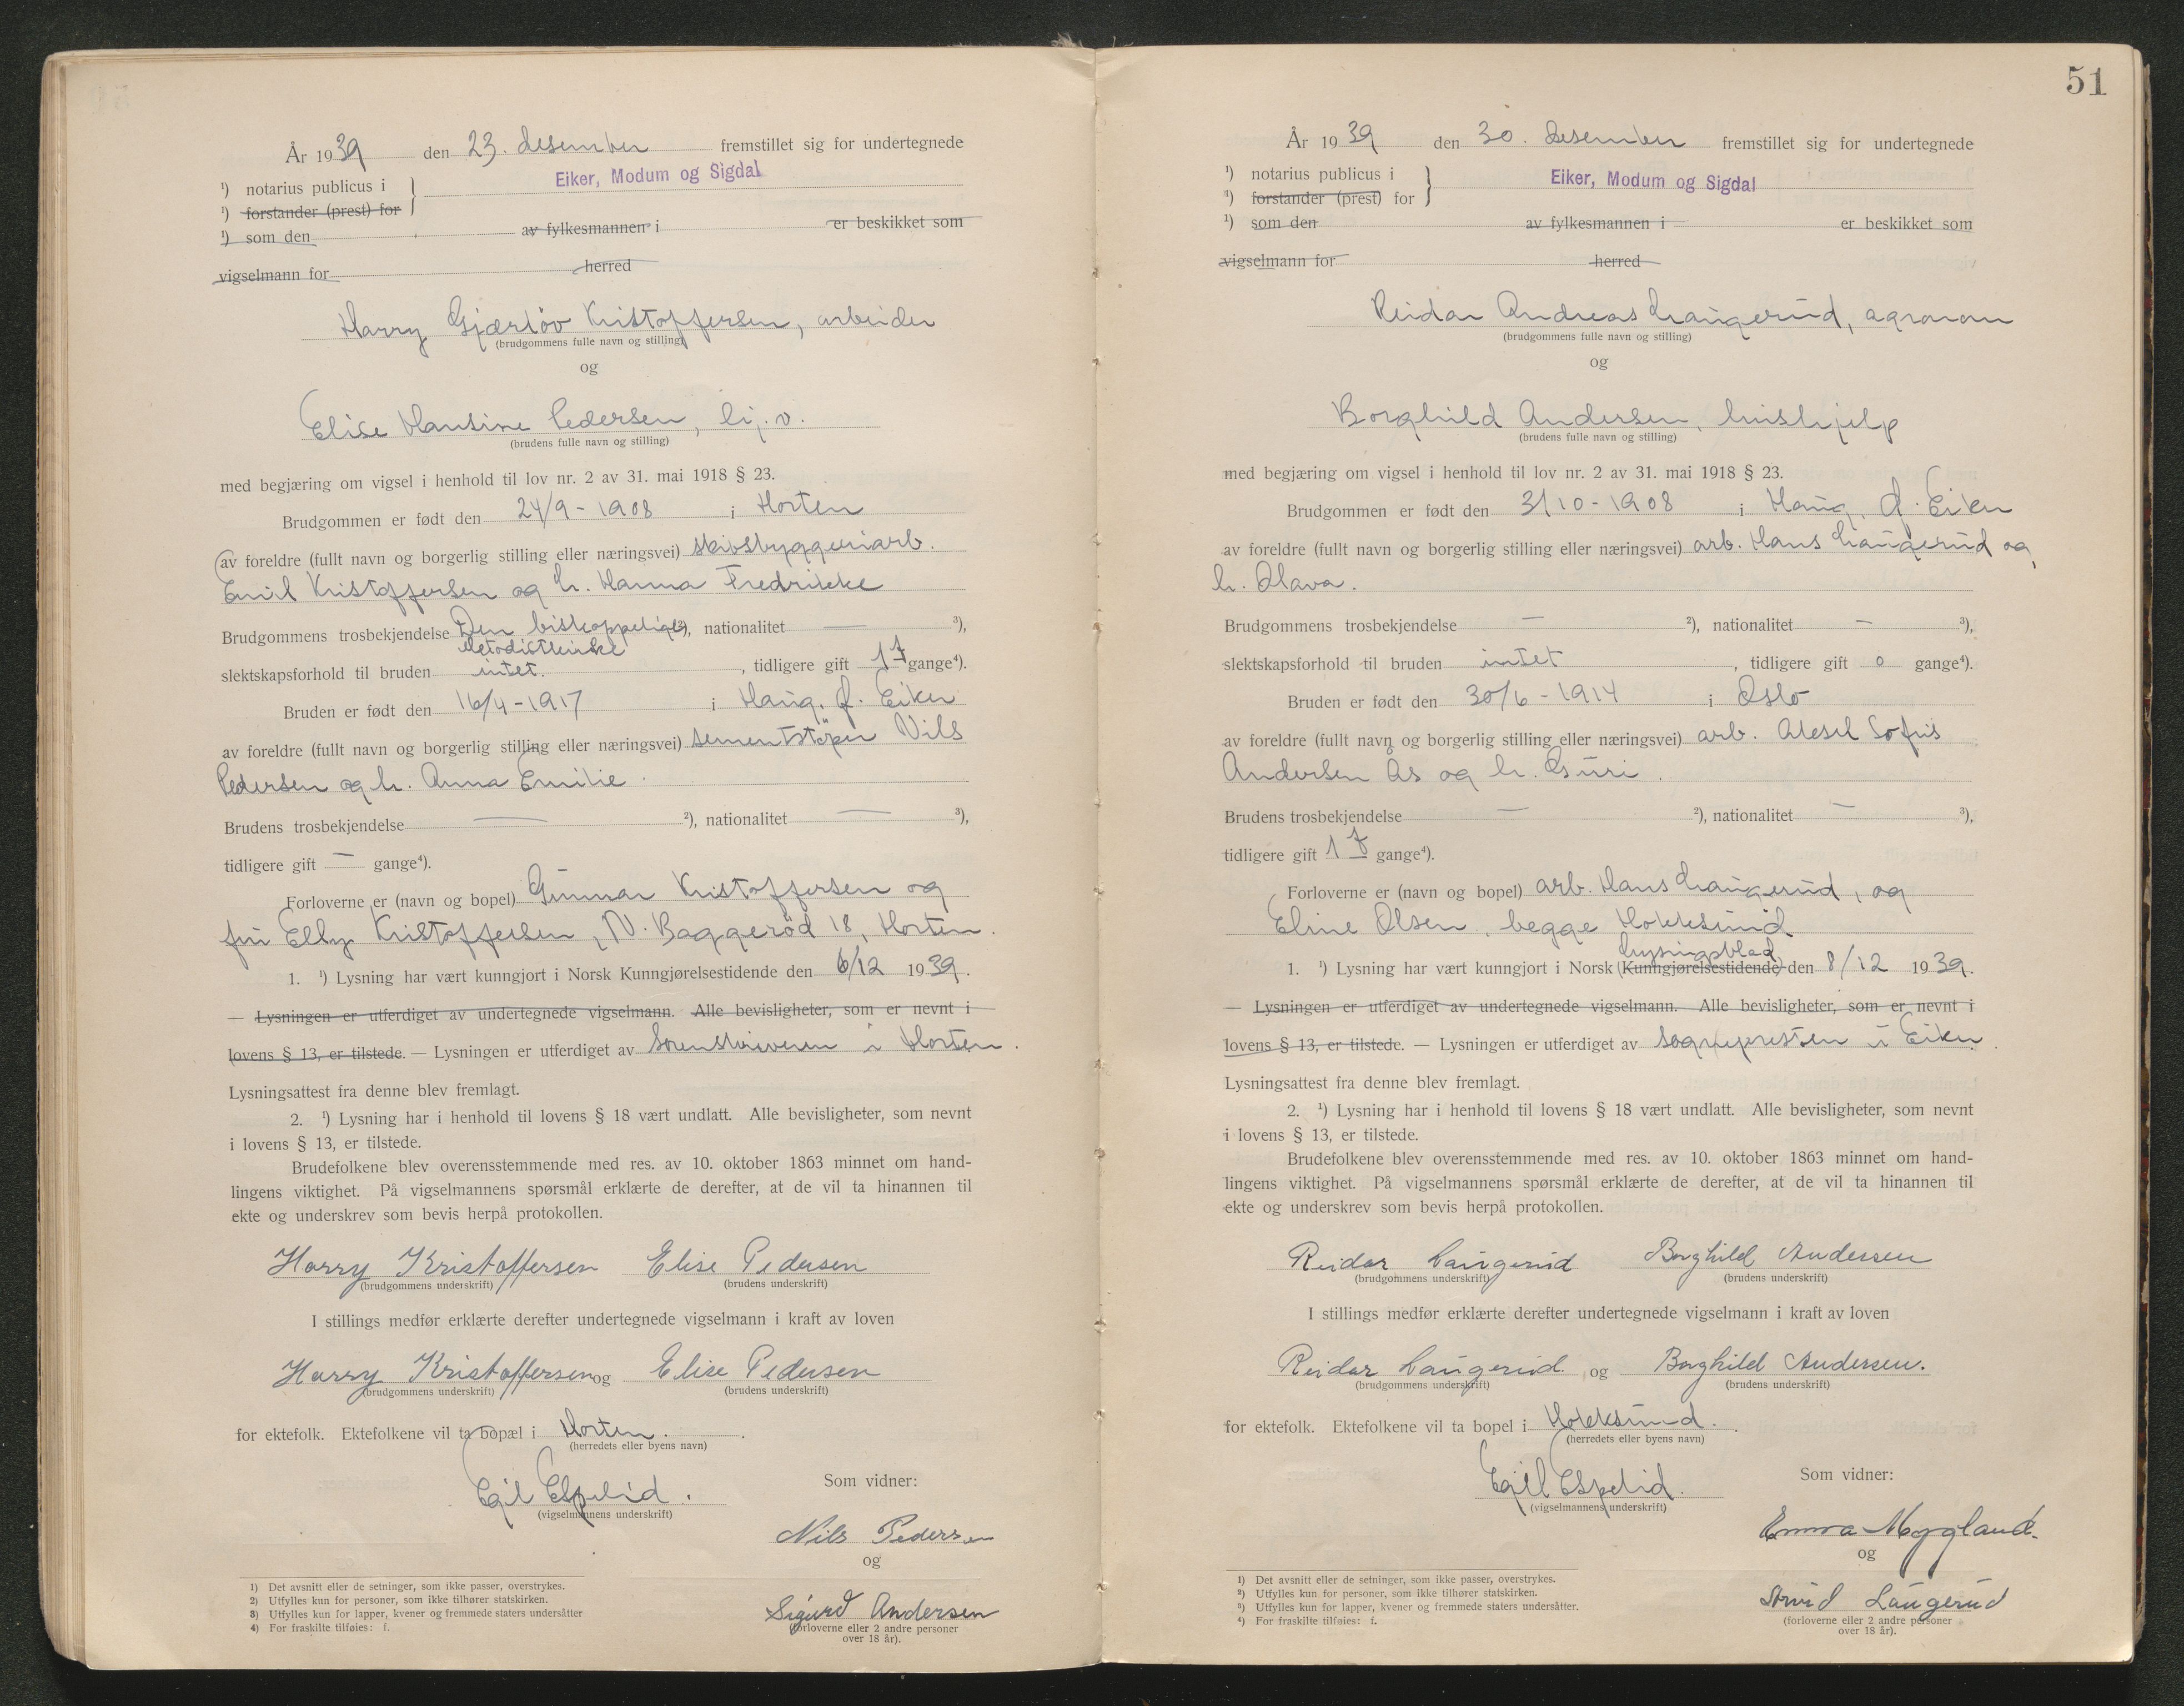 År 1939 den 23. desember fremstillet sig for undertegnede
¹) notarius publicus i Eiker, Modum og Sigdal
¹) forstander (prest) for
¹) som den av fylkesmannen i er beskikket som
vigselmann for herred
Harry Gjærløv Kristoffersen, arbeider
(brudgommens fulle navn og stilling)
og
Elise Hansine Pedersen, hj.v.
(brudens fulle navn og stilling)
med begjæring om vigsel i henhold til lov nr. 2 av 31. mai 1918 § 23.
Brudgommen er født den 24/9 - 1908 i Horten
av foreldre (fullt navn og borgerlig stilling eller næringsvei) skibsbyggeriarb.
Emil Kristoffersen og h. Hanna Fredrikke
Brudgommens trosbekjendelse Den biskoppelige ²), nationalitet — ³),
Metodistkirke
slektskapsforhold til bruden intet. , tidligere gift 1 f gange⁴).
Bruden er født den 16/4 - 1917 i Haug, Ø. Eiker
av foreldre (fullt navn og borgerlig stilling eller næringsvei) sementstøper Nils
Pedersen og h. Anna Emilie.
Brudens trosbekjendelse — ²), nationalitet — ³),
tidligere gift — gange⁴).
Forloverne er (navn og bopel) Gunnar Kristoffersen og
fru Elly Kristoffersen, N. Baggerød 18, Horten.
1. ¹) Lysning har vært kunngjort i Norsk Kunngjørelsestidende den 6/12 1939.
— Lysningen er utferdiget av undertegnede vigselmann. Alle bevisligheter, som er nevnt i
lovens § 13, er tilstede. — Lysningen er utferdiget av Sorenskriveren i Horten.
Lysningsattest fra denne blev fremlagt.
2. ¹) Lysning har i henhold til lovens § 18 vært undlatt. Alle bevisligheter, som nevnt
i lovens § 13, er tilstede.
Brudefolkene blev overensstemmende med res. av 10. oktober 1863 minnet om hand-
lingens viktighet. På vigselmannens spørsmål erklærte de derefter, at de vil ta hinannen til
ekte og underskrev som bevis herpå protokollen.
Harry Kristoffersen Elise Pedersen
(brudgommens underskrift) (brudens underskrift)
I stillings medfør erklærte derefter undertegnede vigselmann i kraft av loven
Harry Kristoffersen og Elise Pedersen
(brudgommens underskrift) (brudens underskrift)
for ektefolk. Ektefolkene vil ta bopæl i Horten.
(herredets eller byens navn)
Egil Espelid. Som vidner:
(vigselmannens underskrift)
Nils Pedersen
og
Sigurd Andersen
(forloverne eller 2 andre personer
over 18 år).
1) Det avsnitt eller de setninger, som ikke passer, overstrykes.
2) Utfylles kun for personer, som ikke tilhører statskirken.
3) Utfylles kun for lapper, kvener og fremmede staters undersåtter
4) For fraskilte tilføies: f.
51
År 1939 den 30. desember fremstillet sig for undertegnede
¹) notarius publicus i Eiker, Modum og Sigdal
¹) forstander (prest) for
¹) som den av fylkesmannen i er beskikket som
vigselmann for herred
Reidar Andreas Laugerud, agronom
(brudgommens fulle navn og stilling)
og
Borghild Andersen, hushjelp
(brudens fulle navn og stilling)
med begjæring om vigsel i henhold til lov nr. 2 av 31. mai 1918 § 23.
Brudgommen er født den 3/10 - 1908 i Haug, Ø. Eiker
av foreldre (fullt navn og borgerlig stilling eller næringsvei) arb. Hans Laugerud og
h. Olava.
Brudgommens trosbekjendelse — ²), nationalitet — ³),
slektskapsforhold til bruden intet , tidligere gift 0 gange⁴).
Bruden er født den 30/6 - 1914 i Oslo
av foreldre (fullt navn og borgerlig stilling eller næringsvei) arb. Aksel Sofus
Andersen Ås og h. Guri.
Brudens trosbekjendelse — ²), nationalitet — ³),
tidligere gift 1 f gange⁴).
Forloverne er (navn og bopel) arb. Hans Laugerud, og
Eline Olsen, begge Hokksund
Lysningsblad
1. ¹) Lysning har vært kunngjort i Norsk (Kunngjørelsestidende) den 8/12 1939.
— Lysningen er utferdiget av undertegnede vigselmann. Alle bevisligheter, som er nevnt i
lovens § 13, er tilstede. — Lysningen er utferdiget av sognepresten i Eiker.
Lysningsattest fra denne blev fremlagt.
2. ¹) Lysning har i henhold til lovens § 18 vært undlatt. Alle bevisligheter, som nevnt
i lovens § 13, er tilstede.
Brudefolkene blev overensstemmende med res. av 10. oktober 1863 minnet om hand-
lingens viktighet. På vigselmannens spørsmål erklærte de derefter, at de vil ta hinannen til
ekte og underskrev som bevis herpå protokollen.
Reidar Laugerud Borghild Andersen
(brudgommens underskrift) (brudens underskrift)
I stillings medfør erklærte derefter undertegnede vigselmann i kraft av loven
Reidar Laugerud. og Borghild Andersen.
(brudgommens underskrift) (brudens underskrift)
for ektefolk. Ektefolkene vil ta bopel i Hokksund.
(herredets eller byens navn)
Egil Espelid. Som vidner:
(vigselmannens underskrift)
Emma Mygland.
og
Arvid Laugerud
(forloverne eller 2 andre personer
over 18 år).
1) Det avsnitt eller de setninger, som ikke passer, overstrykes.
2) Utfylles kun for personer, som ikke tilhører statskirken.
3) Utfylles kun for lapper, kvener og fremmede staters undersåtter.
4) For fraskilte tilføies: f.